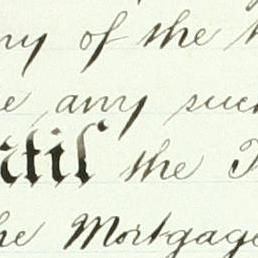 ny of the
e, any such
ntil the
he Mortgage